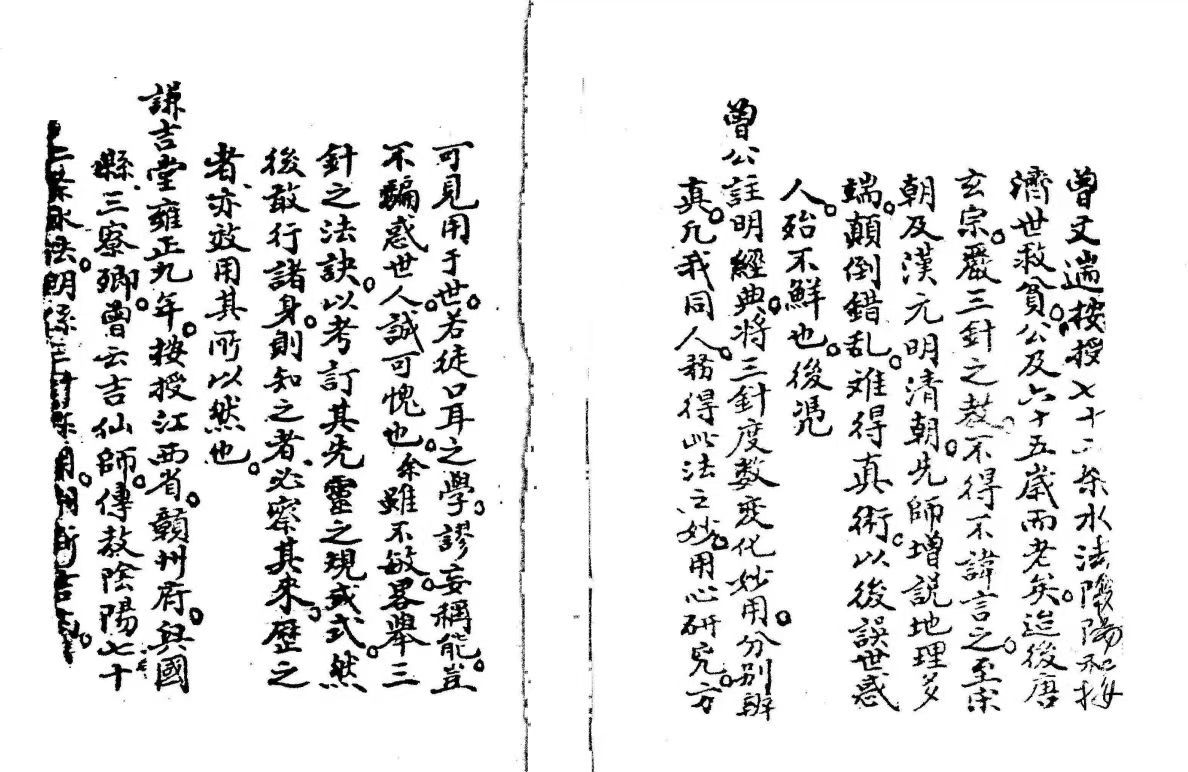 曾文遄按授七十二条水法陰陽和
濟世救貧公及六十五歲而老矣迨後唐
玄宗嚴三針之教不得不諱言之至宋
朝及漢元明清朝先師增説地理多
端顛倒錯乱难得真術以後誤世惑
人殆不鮮也後凴
曾公註明經典將三針度数变化妙用分别辦
真凡我同人務得此法之妙用心研究方
可見用于世若徒口耳之學謬妄稱能豈
不騙惑世人誠可愧也余雖不敏畧舉三
針之法訣以考訂其先靈之規式然
後敢行諸身則知之者必察其来歷之
者亦敢用其所以然也
謙吉堂雍正九年按授江西省贛州府兴國
縣三寮鄉曾云吉仙師傳教陰陽七十
二条水法明係三針